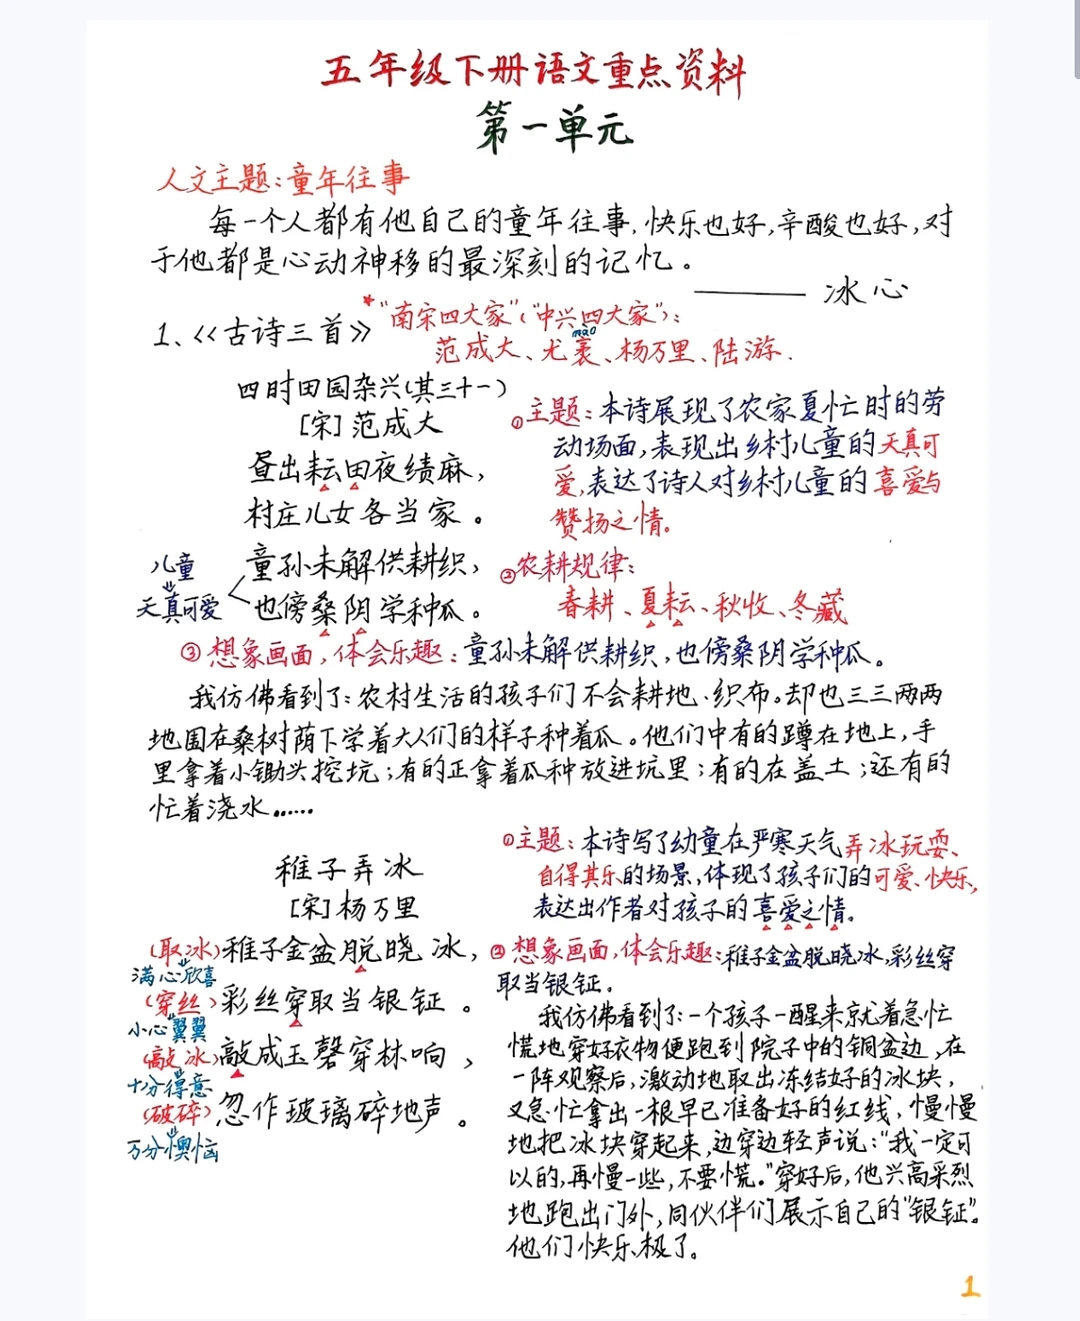 五年级下册语文重点资料
第一单元
人文主题：童年往事
每一个人都有他自己的童年往事,快乐也好,辛酸也好,对
于他都是心动神移的最深刻的记忆。
——冰心
1、《古诗三首》
*"南宋四大家"("中兴四大家"):
mào
范成大、尤袤、杨万里、陆游.
四时田园杂兴(其三十一)
[宋]范成大
昼出耘田夜绩麻,
村庄儿女各当家。
童孙未解供耕织,
也傍桑阴学种瓜。
儿童
天真可爱
①主题:本诗展现了农家夏忙时的劳
动场面,表现出乡村儿童的天真可
爱,表达了诗人对乡村儿童的喜爱与
赞扬之情。
②农耕规律:
春耕、夏耘、秋收、冬藏
③想象画面,体会乐趣:童孙未解供耕织,也傍桑阴学种瓜。
我仿佛看到了:农村生活的孩子们不会耕地、织布。却也三三两两
地围在桑树荫下学着大人们的样子种着瓜。他们中有的蹲在地上,手
里拿着小锄头挖坑;有的正拿着瓜种放进坑里;有的在盖土;还有的
忙着浇水......
稚子弄冰
[宋]杨万里
(取冰)稚子金盆脱晓冰,
满心欣喜
(穿丝)彩丝穿取当银钲。
小心翼翼
(敲冰)敲成玉磬穿林响,
十分得意
(破碎)忽作玻璃碎地声。
万分懊恼
①主题:本诗写了幼童在严寒天气弄冰玩耍、
自得其乐的场景,体现了孩子们的可爱、快乐,
表达出作者对孩子的喜爱之情。
②想象画面,体会乐趣:稚子金盆脱晓冰,彩丝穿
取当银钲.
我仿佛看到了:一个孩子一醒来就着急忙
慌地穿好衣物便跑到院子中的铜盆边,在
一阵观察后,激动地取出冻结好的冰块,
又急忙拿出一根早已准备好的红线,慢慢
地把冰块穿起来,边穿边轻声说:"我一定可
以的,再慢一些,不要慌。"穿好后,他兴高采烈
地跑出门外,同伙伴们展示自己的"银钲"。
他们快乐极了。
1